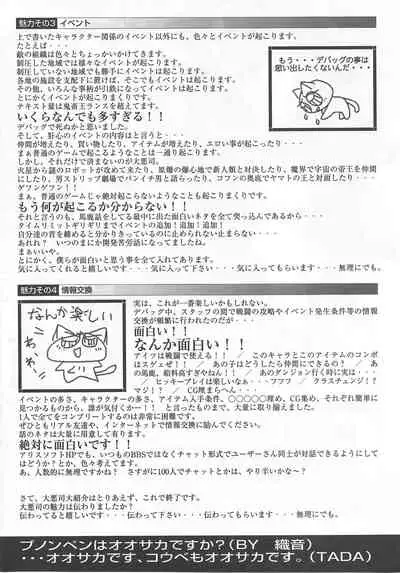 魅力その3 イベント
上で書いたキャラクター関係のイベント以外にも、色々とイベントが起こります。
たとえば・・・
敵の組織は色々とちょっかいかけてきます。
制圧した地域では様々イベントが起こります。
制圧していない地域でも勝手にイベントは起こります。
各地の施設を支配下に置けば、さらにイベントが起こります。
その他、いろんな事柄が引鉄になってイベントは起こります。
とにかくイベントが起こりまくりです。
テキスト量は鬼畜王ランスを超えてます。
いくらなんでも多すぎる！！
デバッグで死ぬかと思いました。
そして、肝心のイベントの内容はと言うと・・・
仲間が増えたり、買い物したり、アイテムが増えたり、エロい事が起こったり・・・
まぁ普通のゲームで起こるようなことは一通り起こります。
しかし、それだけで済まないのが大悪司。
火星から謎のロボットが攻めて来たり、原爆の爆心地で新人類と対決したり、魔界で宇宙の帝王を仲間
にしたり、男ストリップ劇場でパンイチ男と語らったり、コフンの奥底でヤマトの王と対面したり・・・
ゲフンゲフン！
まぁ普通のゲームじゃ絶対起こらないようなことも起こりまくりです。
もう何が起こるか分からない！！
それと言うのも、馬鹿話をしてる最中に出た面白いネタを全て突っ込んであるから・・・
タイムリミットギリギリまでイベントの追加！追加！追加！
自分達の首を締めると分かりきっているのに止められない止まらない・・・
あれれ？ いつのまにか開発苦労話になってましたね。
まぁいいや。
とにかく、僕らが面白いと思う事を全て入れてあります。
気に入ってくれると嬉しいです・・・気に入って下さい・・・気に入ってもらいます・・・無理にでも。
もう・・・デバッグの事は
思い出したくないんだ・・・
魅力その4 情報交換
なんか楽しい
実は、これが一番楽しいかもしれない。
デバッグ中、スタッフの間で戦闘の攻略やイベント発生条件等の情報
交換が頻繁に行われたのだが・・・
面白い！！
なんだか面白い！！
アイツは戦闘で使える！！ ／ このキャラとこのアイテムのコンボ
はスゲェぜ！！ ／ あの子はどうしたら仲間にできるの？ ／ あ
の馬鹿、給料高すぎやねん！！ ／ あのダンジョン行く時に実は・・・
／ ヒッキープレイは楽しいなぁ・・・フフフ ／ クラスチェンジ！？
マジ！？ ／ CG埋まらへん・・・
イベントの多さ、キャラクターの多さ、アイテム入手条件、○○○○○埋め、CG集め、それぞれ簡単に
見つかるものから、誰が気付くかー！！ と言ったものまで、大量に取り揃えました。
1人で全てをコンプリートするのは非常に困難です。
ぜひともリアル友達や、インターネットで情報交換に励んでください。
話のネタは大量に用意して有ります。
絶対に面白いです！！
アリスソフトHPでも、いつものBBSではなくチャット形式でユーザーさん同士が対話できるようにして
はどうか？とか、色々考えてます。
あ、人数的に無理ですかね？ さすがに100人でチャットとかは、やり辛いかな～？
さて、大悪司大紹介はとりあえず、これで終了です。
大悪司の魅力は伝わりましたか？
伝わってると嬉しいです・・・伝わって下さい・・・伝わってもらいます・・・無理にでも。
プノンペンはオオサカですか？（BY 織音）
・・・オオサカです、コウベもオオサカです。（TADA）